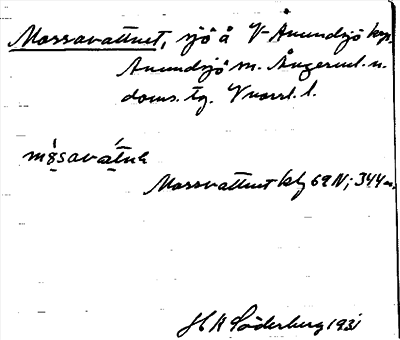 Mossavattnet, sjö å V Anundsjö krg.
Anundsjö sn. Ångerml. n.
doms. tg. Vnorrl. l.
Mossvattnet kbl 69 N; 344 m.
H A Söderberg 1931